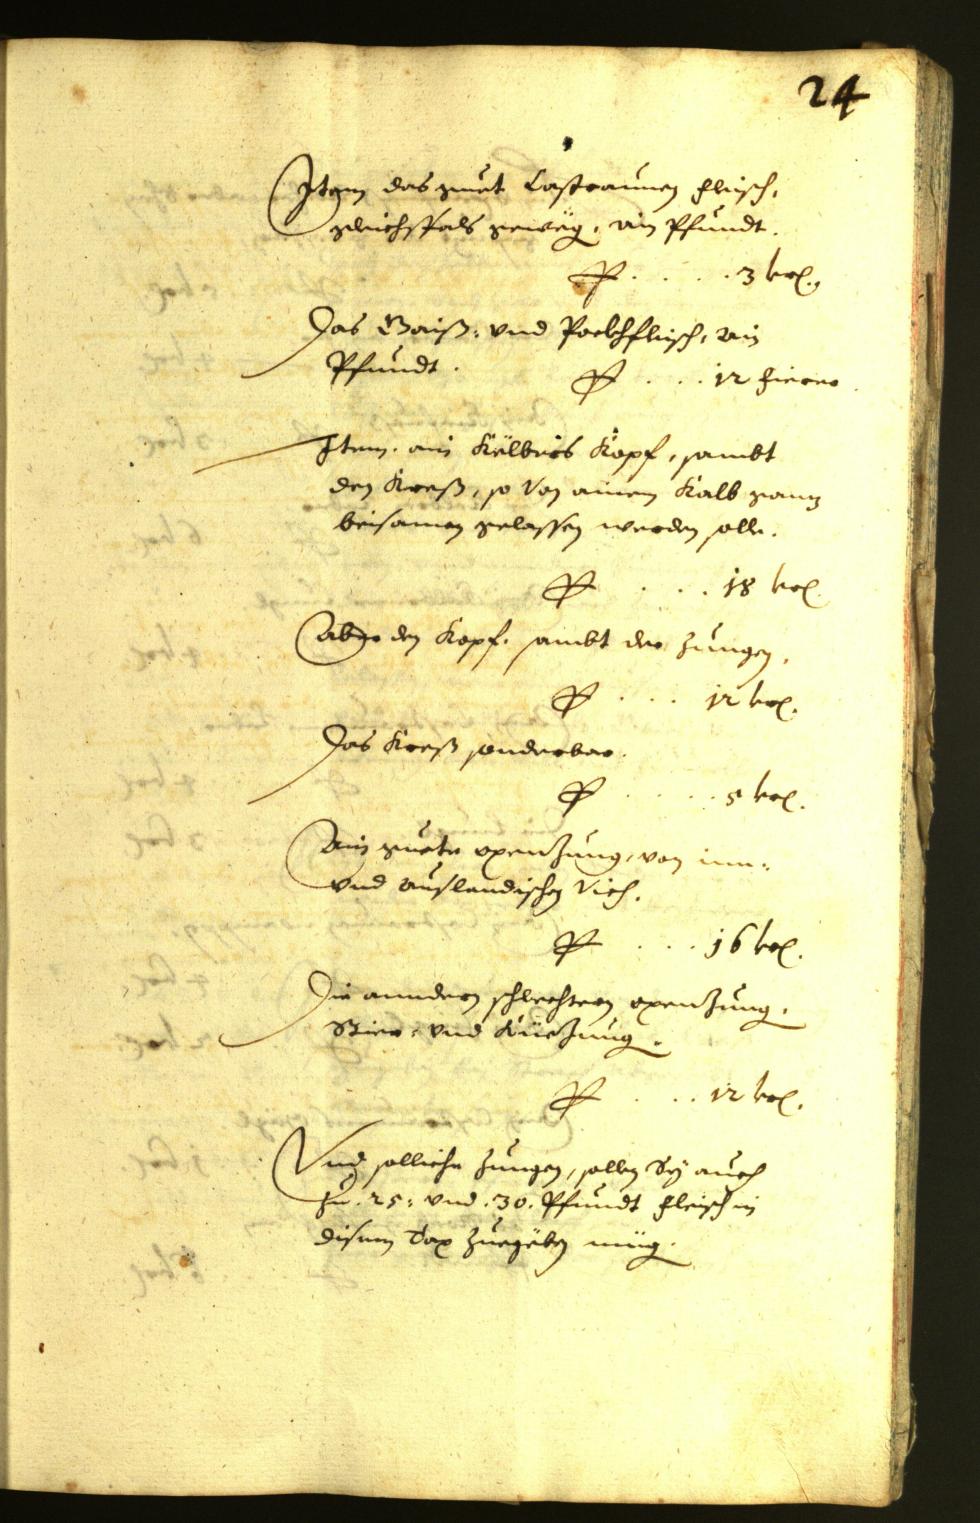 24
Item das guet Castraunen fleisch,
gleichsfals gewëg, ain Pfundt.
P . . . . 3 krℓ.
Das Gaiß: vnd Pockhfleisch, ain
Pfundt.
P . . . 12 fierer
Item. ain Këlbres Kopf, sambt
den Kreß, so von ainem Kalb ganz
beisamen gelassen werden solle.
P . . . 18 krℓ.
Aber den Kopf. sambt der Zungen,
P . . . 12 krℓ.
Das Kreß sonderbar.
P . . . . . 5 krℓ.
Ain guete oxen Zung, von inn:
vnd auslendischen Vich.
P . . . 16 krℓ.
Die anndern schlechtern oxen Zung,
Stier: vnd Küe Zung.
P . . . 12 krℓ.
Vnd solliche Zungen, sollen Sÿ auch
zu .25: vnd .30. Pfundt fleisch in
disem Tax zuegëben